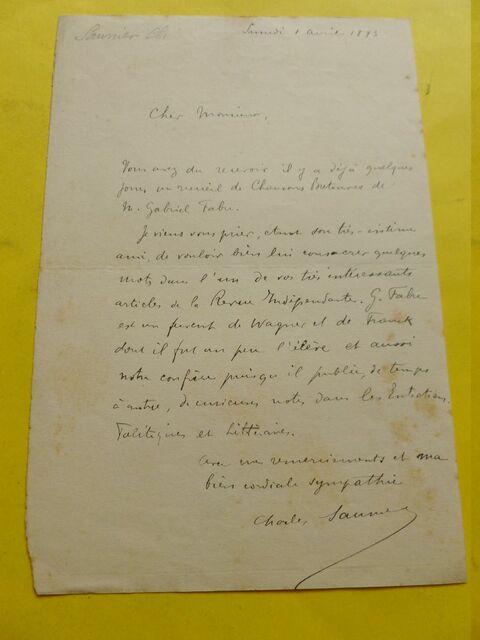 Saunier Ch.
Samedi 1 avril 1893
Cher Monsieur,
Vous avez du recevoir il y a déjà quelques
jours un recueil de Chansons Bretonnes de
M. Gabriel Fabre.
Je viens vous prier, étant son très-intime
ami, de vouloir bien lui consacrer quelques
mots dans l'un de vos très intéressants
articles de la Revue Indépendante. G. Fabre
est un fervent de Wagner et de Franck
dont il fut un peu l'élève et aussi
notre confrère puisqu'il publie, de temps
à autre, de curieuses notes dans les Entretiens
Politiques et Littéraires.
Avec mes remerciements et ma
bien cordiale sympathie
Charles Saunier